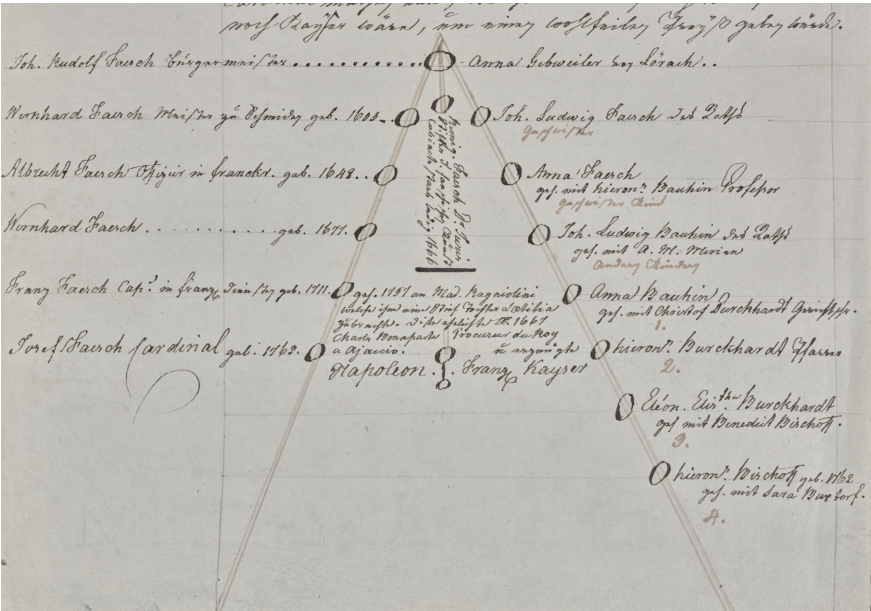 noch Kayser wäre, um einen wohlfeilen Preyß geben würde.
Joh. Rudolf Faesch Bürgermeister ............ Anna Gebweiler von Lörach..
Wernhard Faesch Meister zu Schmiden geb. 1605..
Joh. Ludwig Faesch des Raths
Geschwister
Albrecht Faesch Offizier in franckr. geb. 1648..
Anna Faesch
gef. mit hieron.s Bauhin Professor
Geschwister Kind
Wernhard Faesch .......... geb. 1677.
Joh. Ludwig Bauhin des Raths
gef. mit A. M. Merian
Andere Kinder
Franz Faesch Cap.t in franz. Diensten geb. 1711.
gef. 1757 an Mad. Ragniolini
welche ihm eine Stief Tochter Lætitia
gebracht. Diese ehelichte A. 1667
Charle Bonaparte Procureur du Roy
a Ajaccio. u erzeugte
Anna Bauhin
gef. mit Christof Burckhardt
1.
Josef Faesch Cardinal geb. 1762.
Napoleon. Franz Kayser
hieron.s Burckhardt Pfarrer
2.
Eléon. Elis.tha Burckhardt
gef mit Benedict Bischoff.
3.
hieron.s Bischoff geb. 1762
gef. mit Sara Buxtorf.
4.